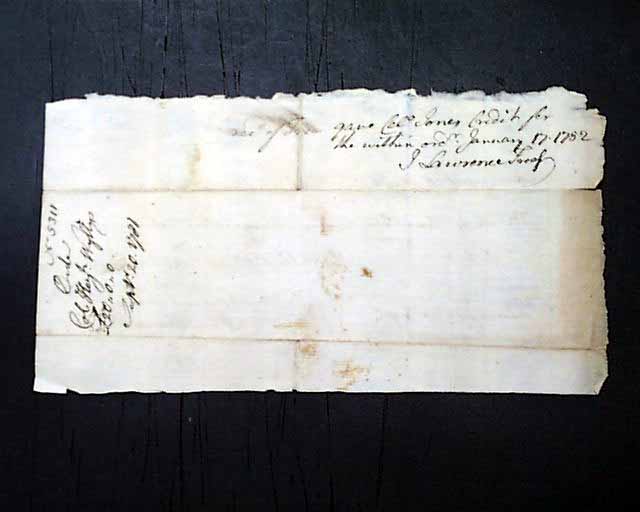 gave Cr. Jones Credit for
the within ordr. January 17. 1782
J Lawrence Treasr
No 5311
Order
Col. Hezh. Wyllys
Septr. 20. 1781